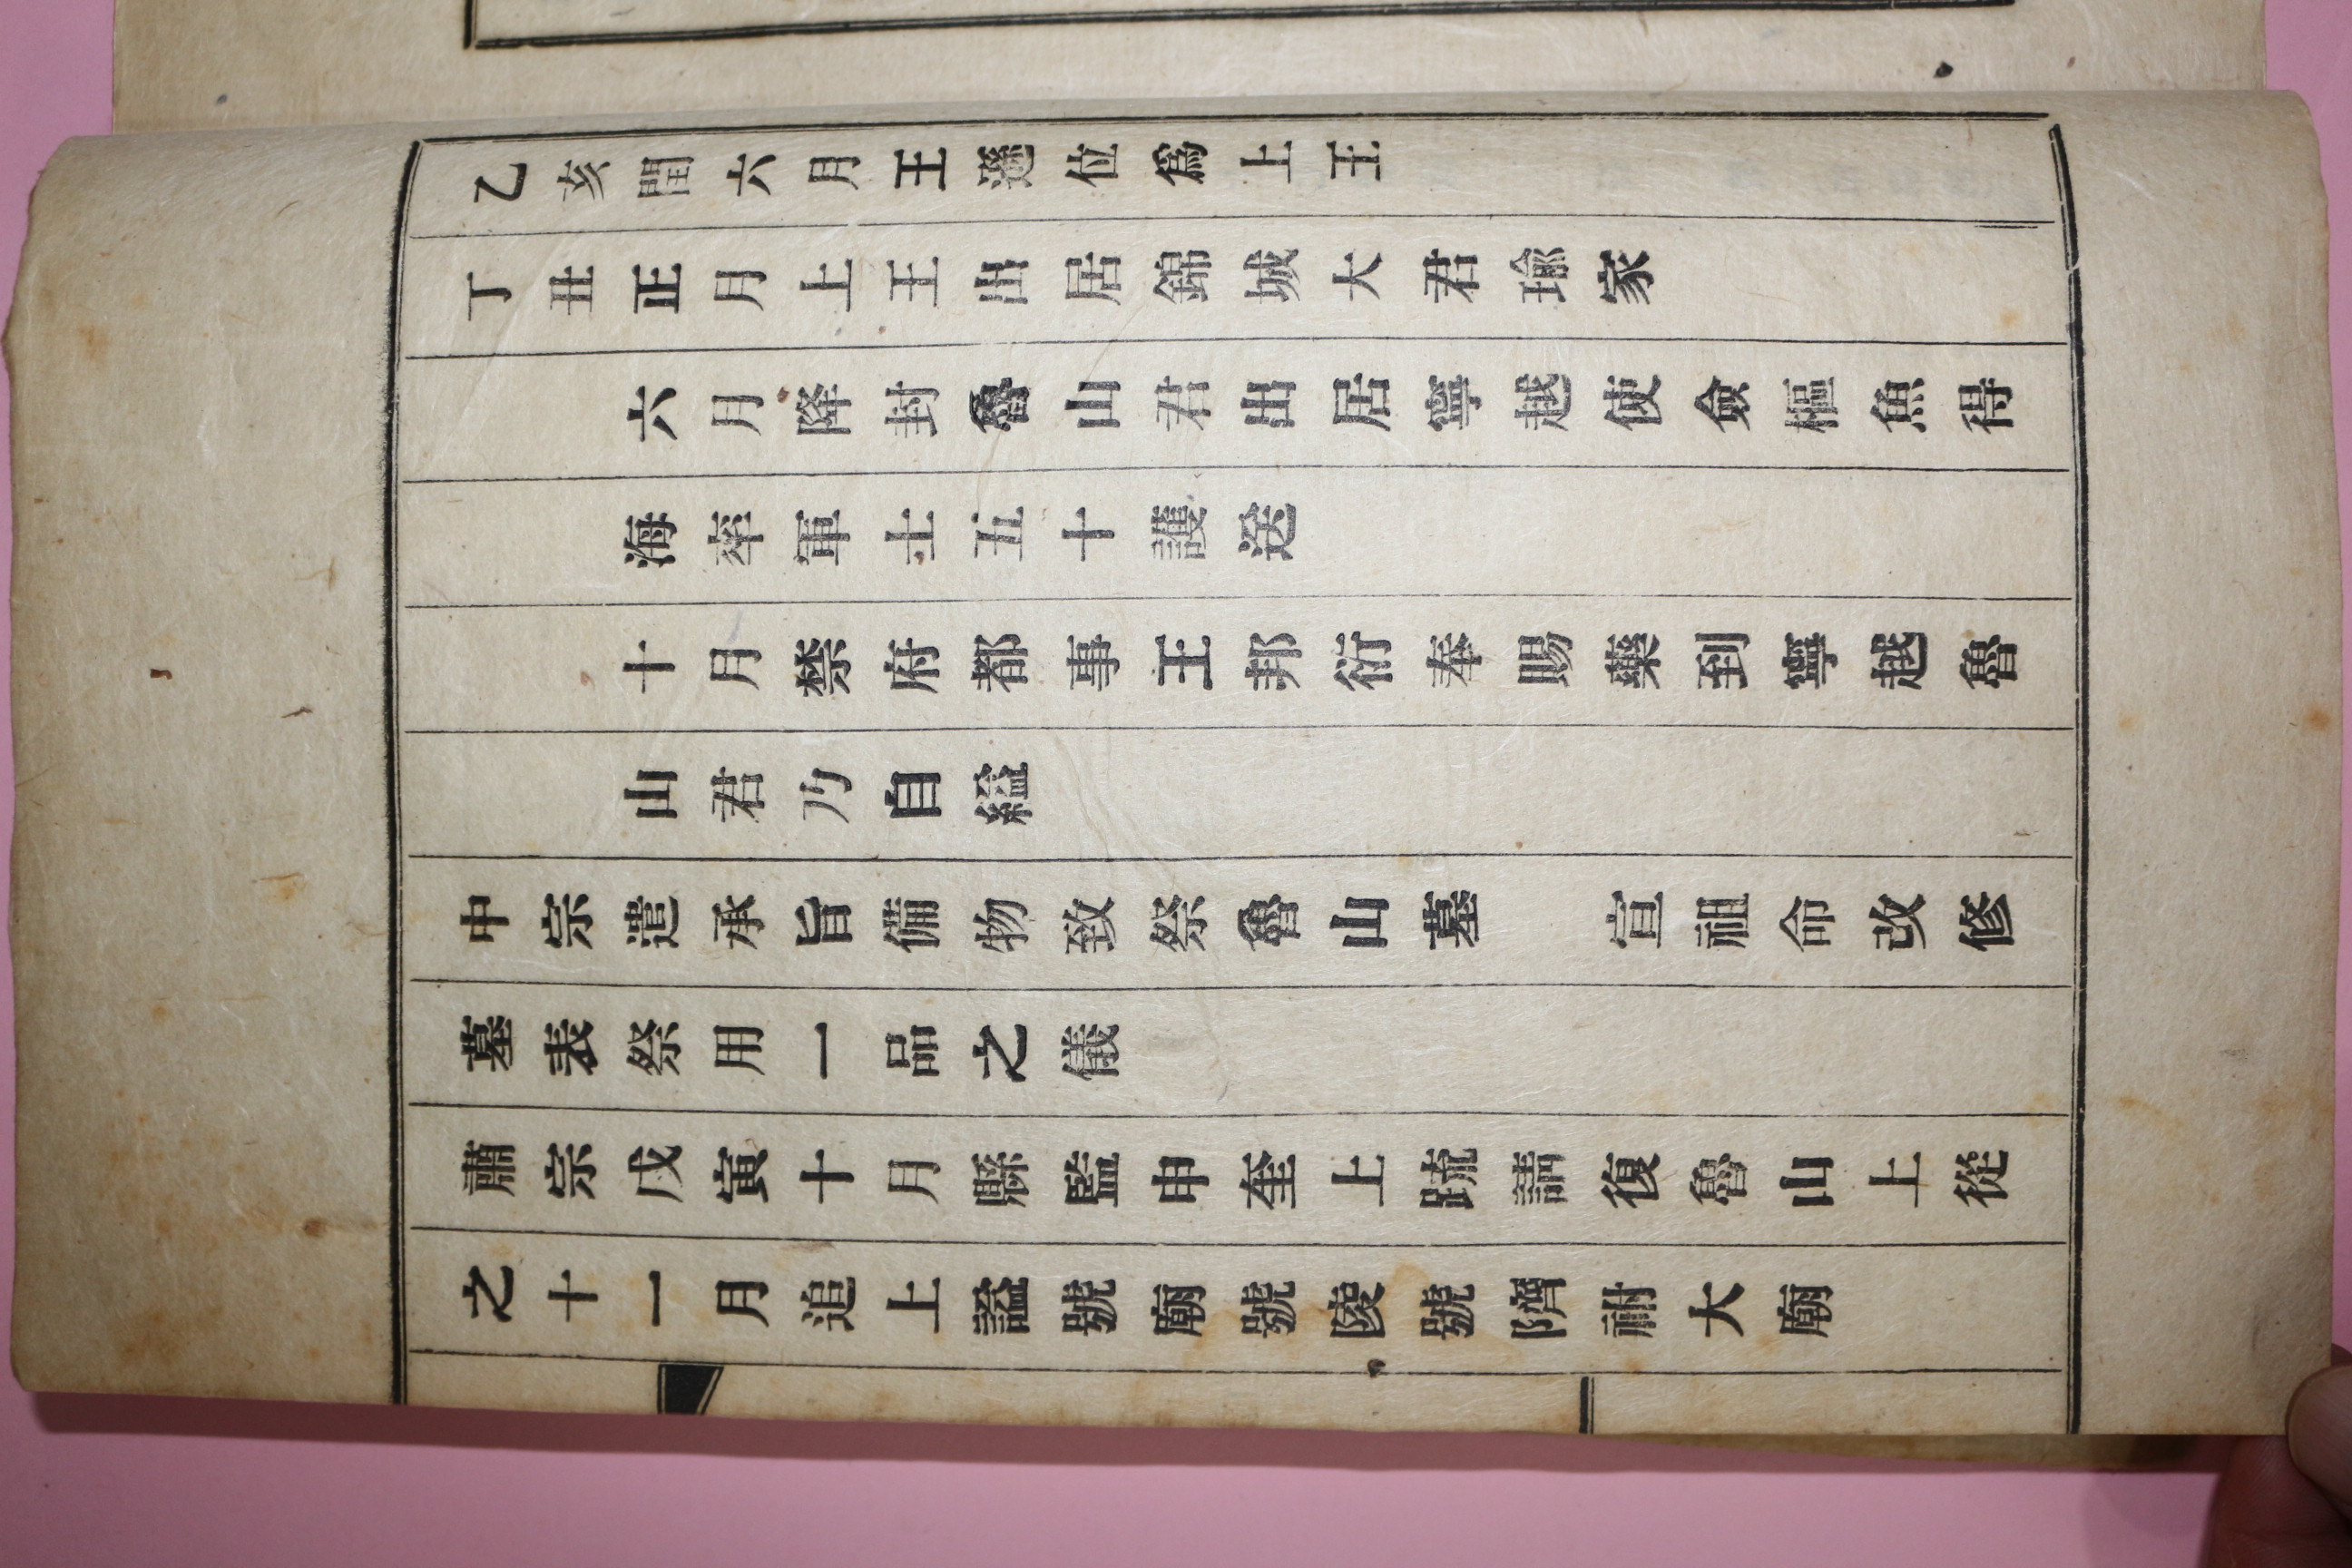 乙亥閏六月王遜位爲上王
丁丑正月上王出居錦城大君瑜家
六月降封魯山君出居寧越使僉樞魚得
海率軍士五十護送
十月禁府都事王邦衍奉賜藥到寧越魯
山君乃自縊
中宗遣承旨備物致祭魯山墓 宣祖命改修
墓表祭用一品之儀
肅宗戊寅十月縣監申奎上疏請復魯山上從
之十一月追上謚號廟號陵號隮祔大廟